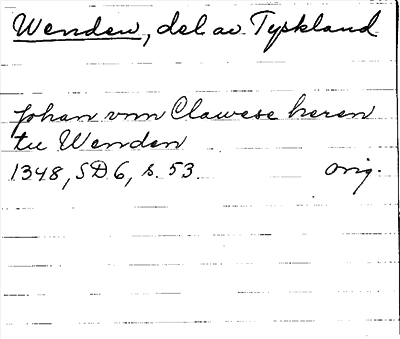 Wenden, del av Tyskland
Johan vnn Clawese heren
tu Wenden
1348, SD 6, s. 53. orig.